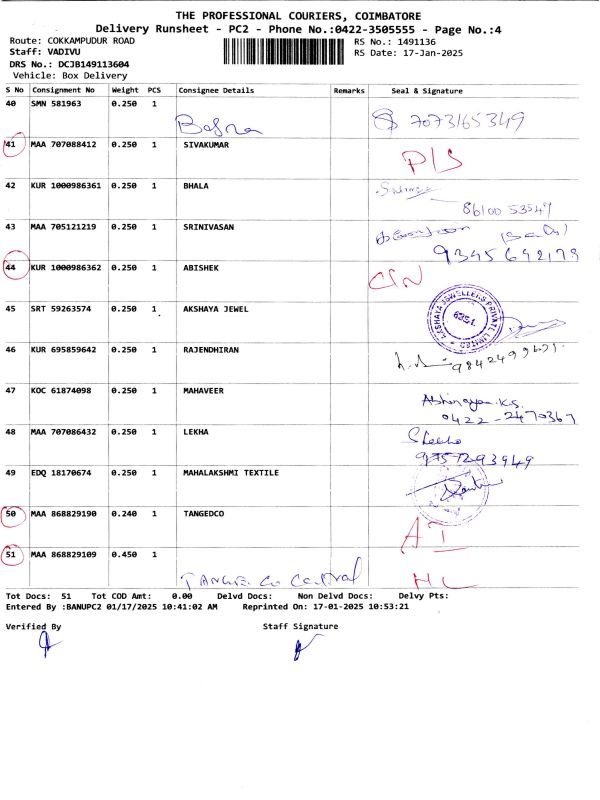 THE PROFESSIONAL COURIERS, COIMBATORE
Delivery Runsheet - PC2 - Phone No.:0422-3505555 - Page No.:4
Route: COKKAMPUDUR ROAD RS No.: 1491136
Staff: VADIVU RS Date: 17-Jan-2025
DRS No.: DCJB149113604
Vehicle: Box Delivery
S No Consignment No Weight PCS Consignee Details Remarks Seal & Signature
40 SMN 581963 0.250 1
7073165349
41 MAA 707088412 0.250 1 SIVAKUMAR
P/S
42 KUR 1000986361 0.250 1 BHALA
86100 53549
43 MAA 705121219 0.250 1 SRINIVASAN
9345692179
44 KUR 1000986362 0.250 1 ABISHEK
C/N
45 SRT 59263574 0.250 1 AKSHAYA JEWEL
AKSHAYA JEWELLERS PRIVATE LIMITED
46 KUR 695859642 0.250 1 RAJENDHIRAN
47 KOC 61874098 0.250 1 MAHAVEER
0422-2470367
48 MAA 707086432 0.250 1 LEKHA
49 EDQ 18170674 0.250 1 MAHALAKSHMI TEXTILE
50 MAA 868829190 0.240 1 TANGEDCO
51 MAA 868829109 0.450 1
Tot Docs: 51 Tot COD Amt: 0.00 Delvd Docs: Non Delvd Docs: Delvy Pts:
Entered By :BANUPC2 01/17/2025 10:41:02 AM Reprinted On: 17-01-2025 10:53:21
Verified By Staff Signature